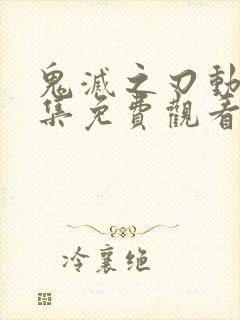 鬼滅之刃動
集免費觀看
冷襄绝